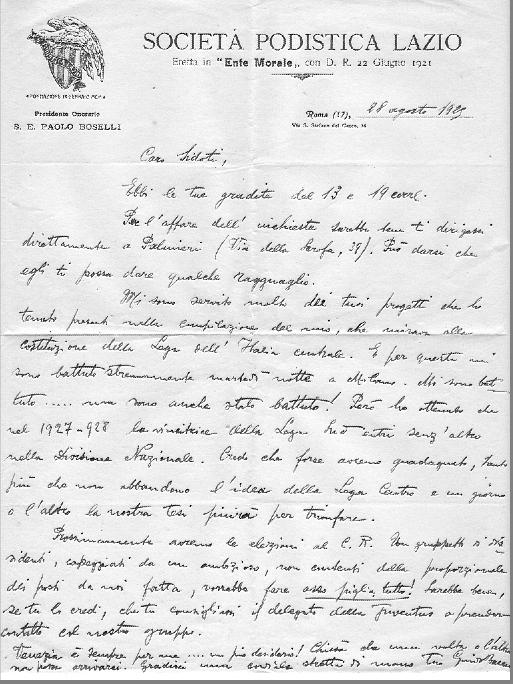 SOCIETÀ PODISTICA LAZIO
Eretta in "Ente Morale„ con D. R. 22 Giugno 1921
Presidente Onorario
S. E. PAOLO BOSELLI
Roma (17), 28 agosto 1925
Via S. Stefano del Cacco, 16
Caro Sidoti,
Ebbi le tue gradite del 13 e 19 corr.
Per l'affare dell' inchiesta sarebbe bene ti dirigessi
direttamente a Palmieri (Via della Scrofa, 39). Può darsi che
egli ti possa dare qualche ragguaglio.
Mi sono servito molto dei tuoi progetti che ho
tenuto presenti nella compilazione del mio, che mirava alla
costituzione della Lega dell' Italia centrale. E per questa mi
sono battuto strenuamente martedì notte a Milano. Mi sono bat-
tuto ..... ma sono anche stato battuto! Però ho ottenuto che
nel 1927-928 la vincitrice della Lega Sud entri senz'altro
nella Divisione Nazionale. Credo che forse avremo guadagnato, tanto
più che non abbandono l'idea della Lega Centro e un giorno
o l'altro la nostra tesi finirà per trionfare.
Prossimamente avremo le elezioni al C. R. Un gruppetto di dis-
sidenti, capeggiati da un ambizioso, non contenti della proporzionale
dei posti da noi fatta, vorrebbe fare asso piglia tutto! Sarebbe bene,
se tu lo credi, che tu consigliassi il delegato della Juventus a prendere
contatto col nostro gruppo.
è sempre per me .... un pio desiderio! Chissà che una volta o l'altra
non possa arrivarci. Gradisci una cordiale stretta di mano tuo